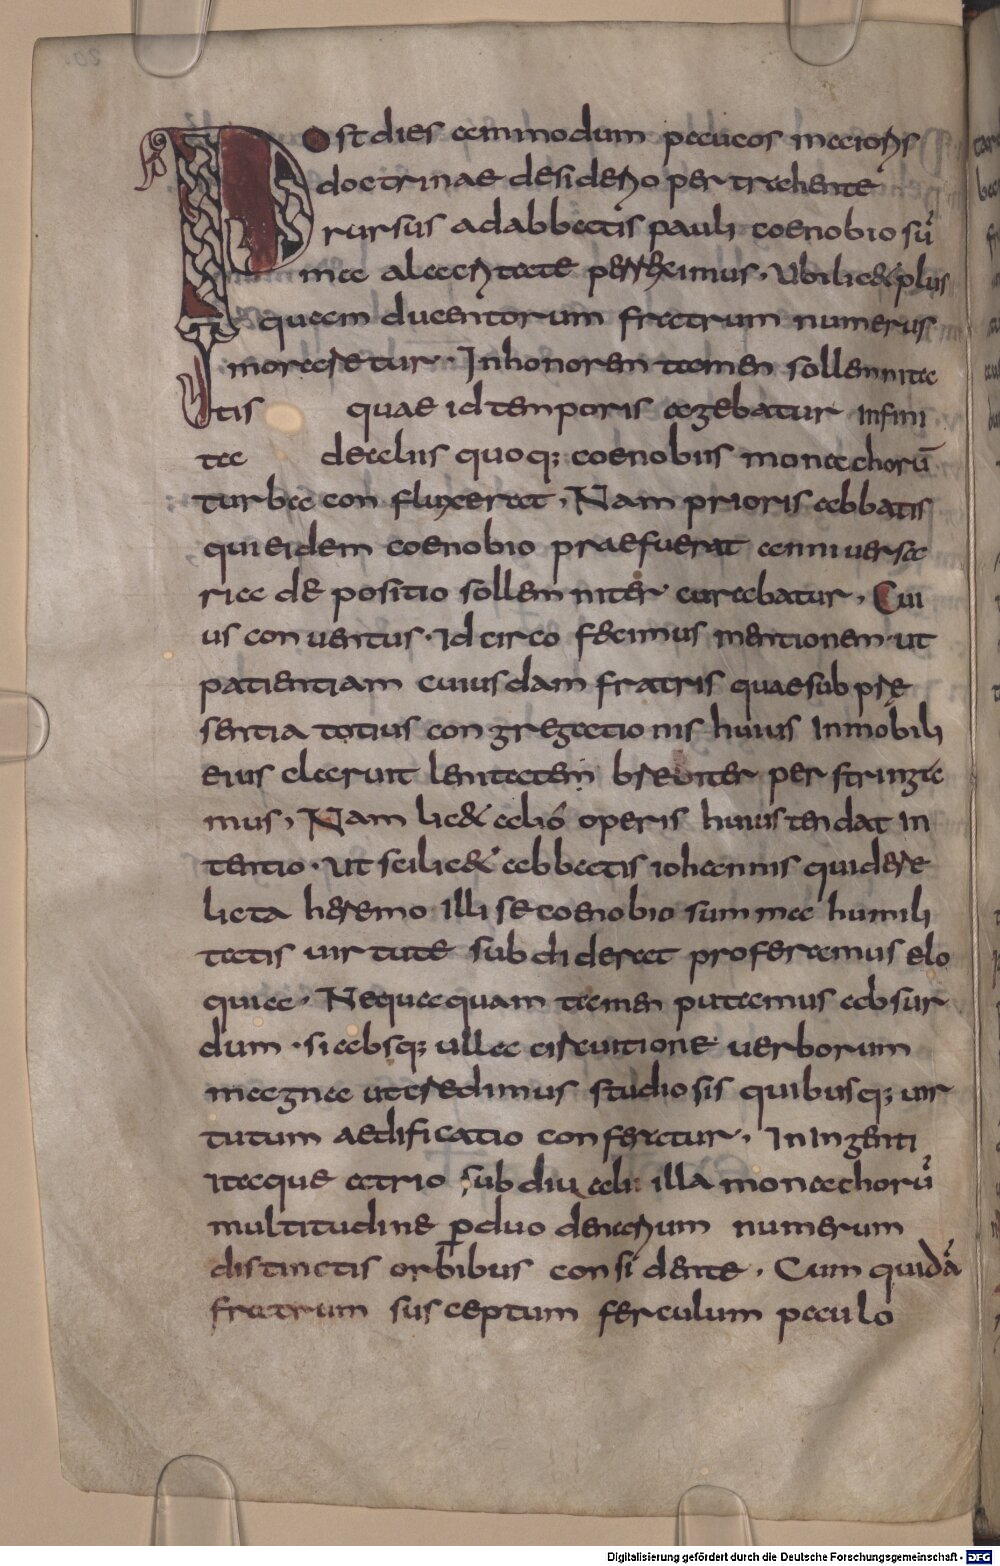 Post dies ammodum paucos maioris
doctrinae desiderio pertrahente
rursus ad abbatis pauli coenobio sū
ma alacritate perreximus. Ubi licet plus
quam ducentorum fratrum numerus
moraretur. In honorem tamen sollemnita
tis quae id temporis agebatur infini
ta de aliis quoq; coenobiis monachorū
turba confluxerat, Nam prioris abbatis
qui eidem coenobio praefuerat anniuersa
ria depositio sollemniter curabatur, Cui
us conuentus. Idcirco fecimus mentionem. ut
patientiam cuiusdam fratris quae sub prę
sentia totius congregationis huius inmobili
eius claruit lenitatem breuiter perstringa
mus, Nam licet alió operis huius tendat in
tentio. Ut scilicet abbatis iohannis qui dere
licta heremo illi se coenobio summa humili
tatis uirtute subdiderat proferamus elo
quia. Nequaquam tamen putamus absur
dum. si absq; ulla circuitione uerborum
magna ut credimus studiosis quibusq; uir
tutum aedificatio conferatur. In ingenti
itaque atrio sub diu alii illa monachorū
multitudine p duo denarium numerum
distinctis orbibus considente. Cum quidā
fratrum susceptum ferculum paulo
Digitalisierung gefördert durch die Deutsche Forschungsgemeinschaft - DFG